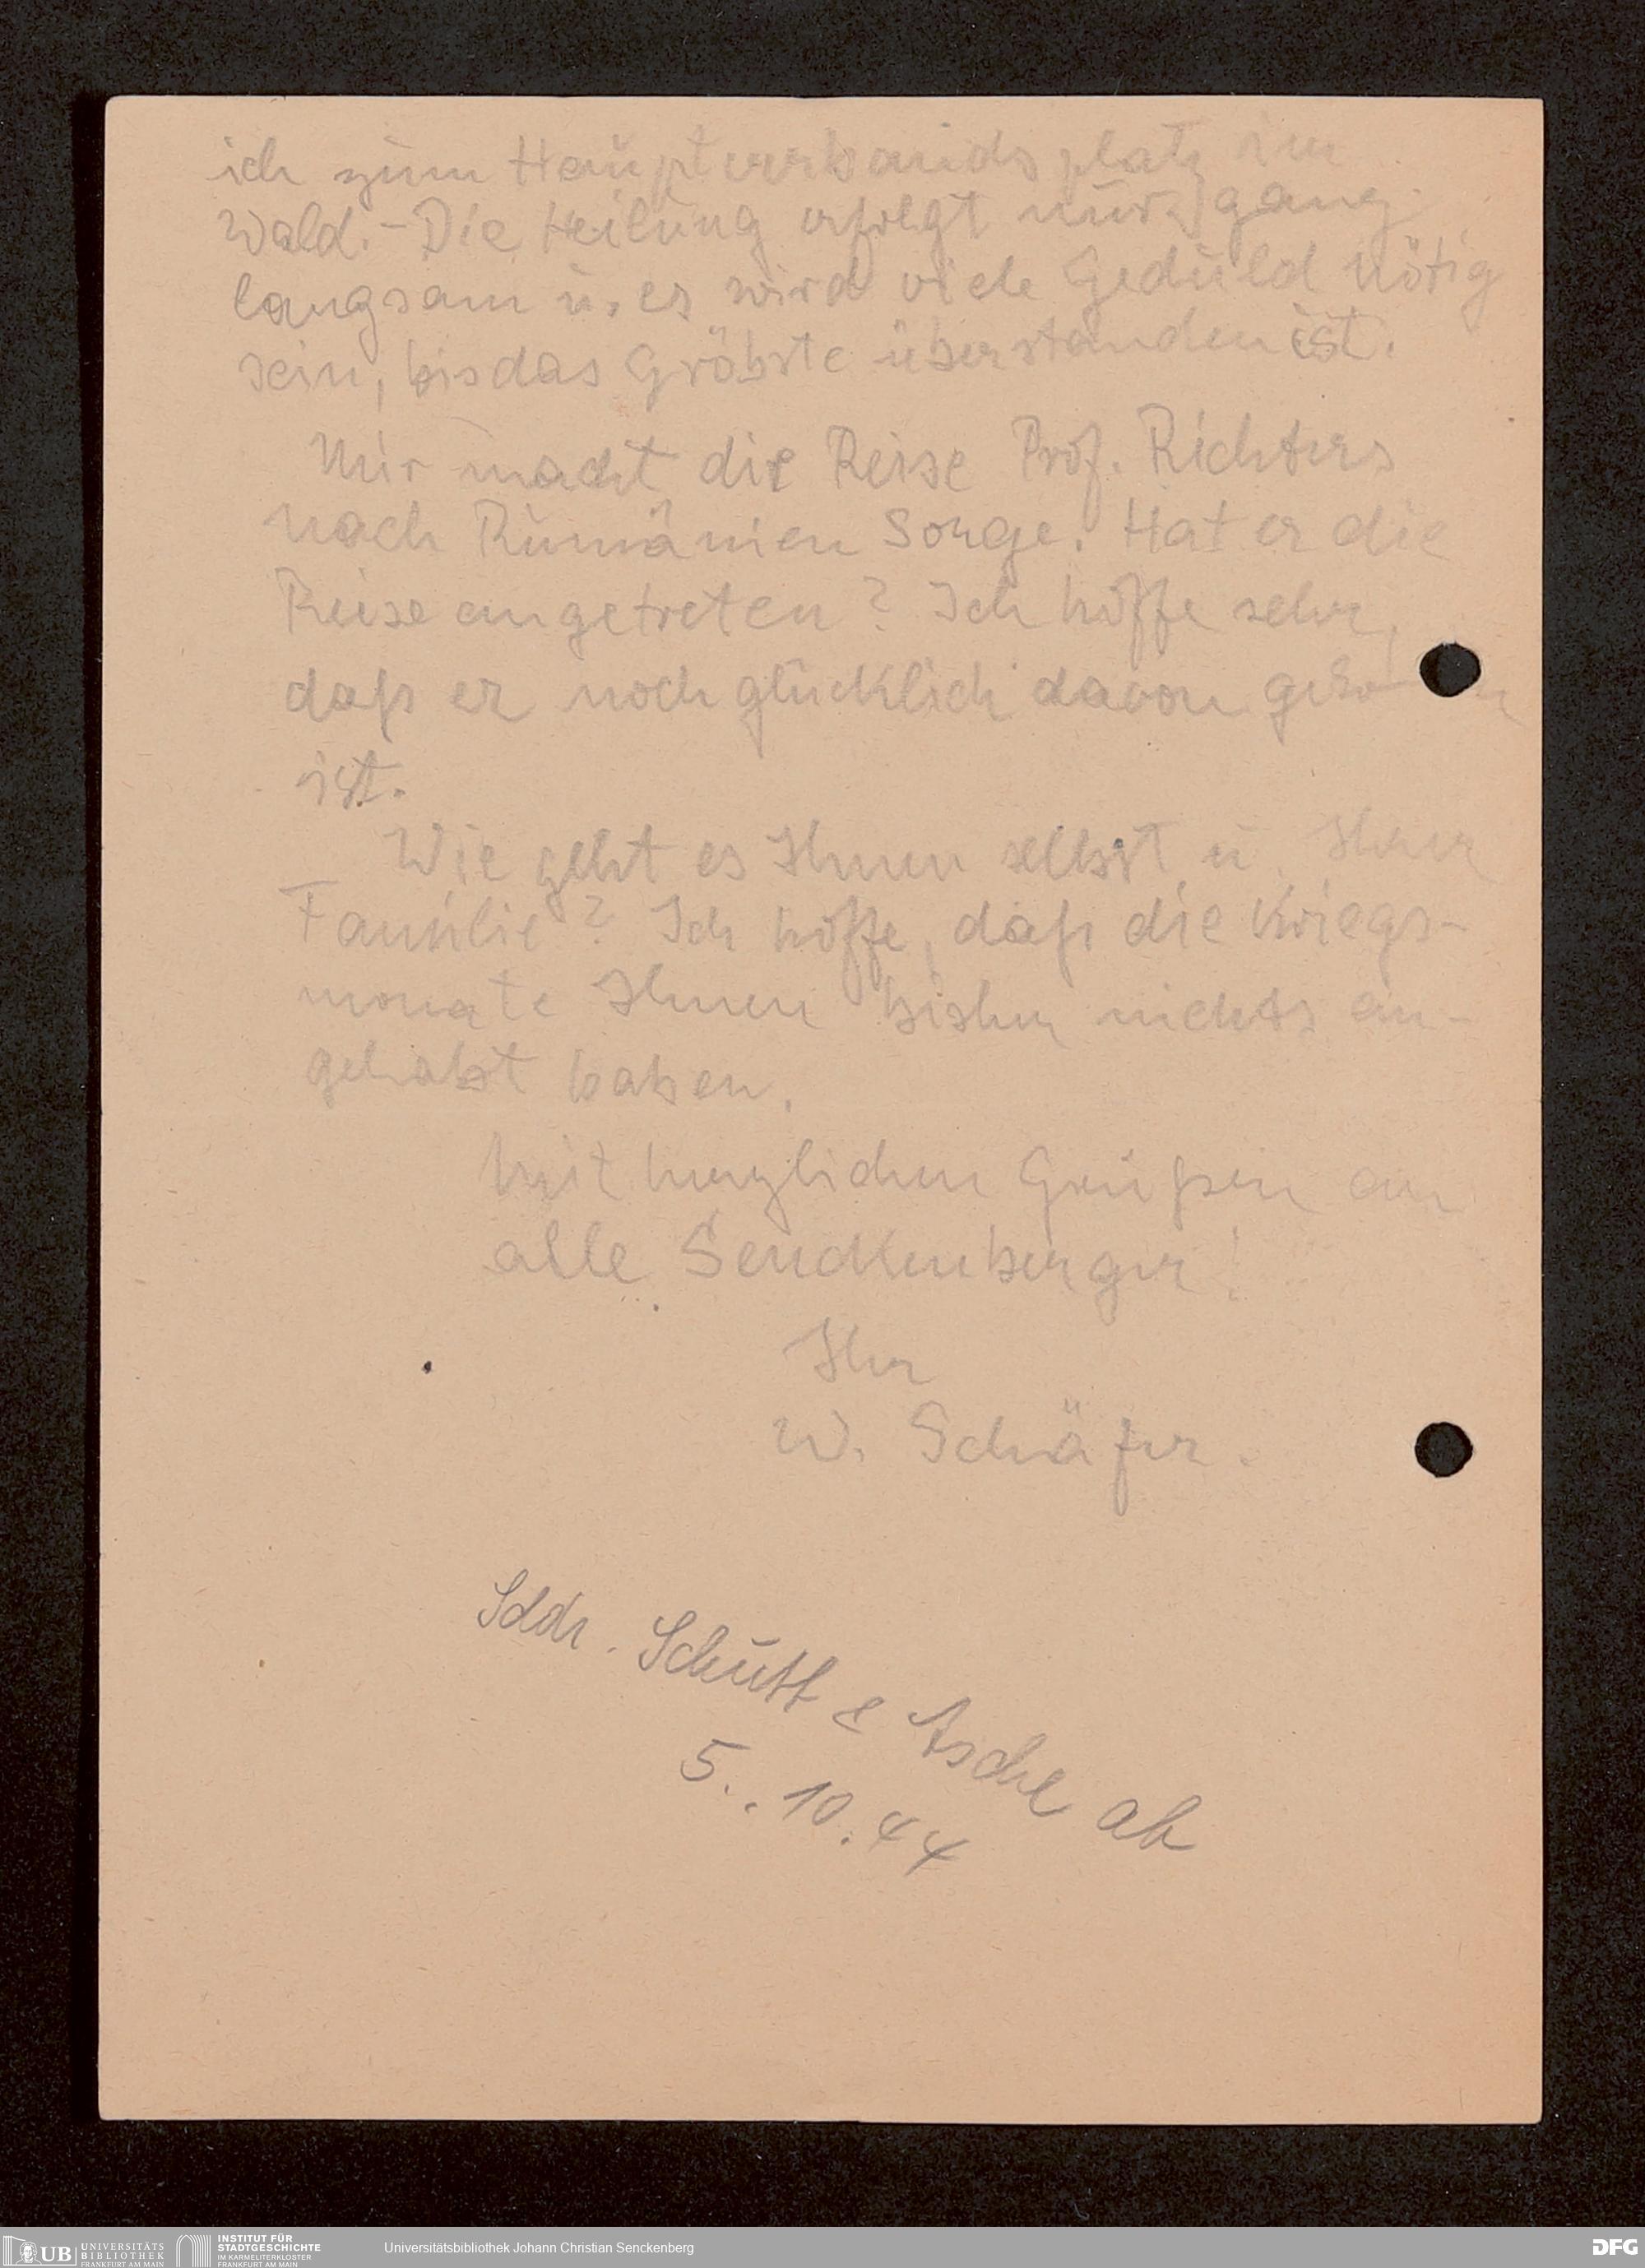 ich zum Hauptverbandsplatz im
Wald. - Die Heilung erfolgt nur ganz
langsam u. es wird viele Geduld nötig
sein, bis das Gröbste überstanden ist.
Mir macht die Reise Prof. Richters
nach Rumänien Sorge. Hat er die
Reise angetreten? Ich hoffe sehr,
daß er noch glücklich davon
ist.
Wie geht es Ihnen selbst u. Ihrer
Familie? Ich hoffe, daß die Kriegs-
monate Ihnen bisher nichts an-
gehabt haben.
Mit herzlichen Grüßen an
alle Senckenberger!
Ihr
W. Schäfer.
Sddr. Schutt & Asche ab
5. 10. 44
UB UNIVERSITÄTS
BIBLIOTHEK
FRANKFURT AM MAIN
INSTITUT FÜR
STADTGESCHICHTE
IM KARMELITERKLOSTER
FRANKFURT AM MAIN
Universitätsbibliothek Johann Christian Senckenberg
DFG